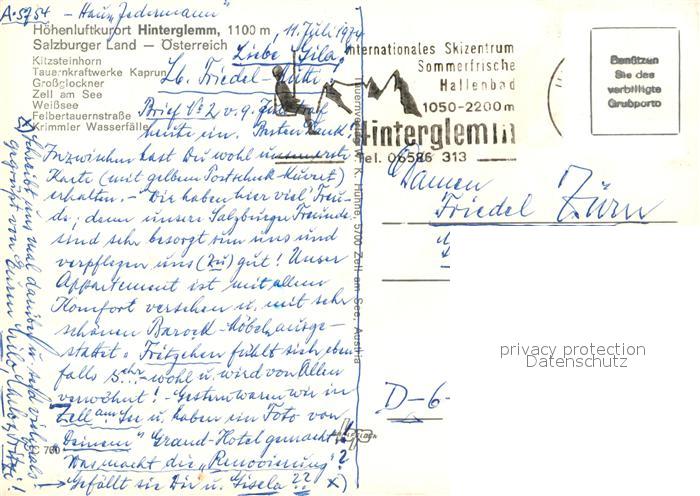 A-5754 - Haus "Jedermann"
Höhenluftkurort Hinterglemm, 1100 m
Salzburger Land — Österreich
Kitzsteinhorn
Tauernkraftwerke Kaprun
Großglockner
Zell am See
Weißsee
Felbertauernstraße
Krimmler Wasserfälle
11. Juli 1974
Liebe Gila,
Lb. Friedel-Mutti!
Brief Nr 2 v. 9. Juli traf
heute ein. Besten Dank!
Inzwischen hast Du wohl unsere erste
Karte (mit gelbem Postscheck-Kuvert)
erhalten. - Wir haben hier viel Freu-
de; denn unsere Salzburger Freunde
sind sehr besorgt um uns und
verpflegen uns (zu) gut! Unser
Appartement ist mit allem
Komfort versehen u. mit sehr
schönen Barock-Möbeln ausge-
stattet. Fritzchen fühlt sich eben
falls sehr wohl u. wird von Allen
verwöhnt! - Gestern waren wir in
Zell am See u. haben ein Foto von
"Deinem" Grand-Hotel gemacht!
Was macht die "Renovierung"?
Gefällt sie Dir u. Gisela?? x)
x) Schreibt uns mal darüber u. seid vielmals
gegrüßt von Euren
Internationales Skizentrum
Sommerfrische
Hallenbad
1050-2200 m
Hinterglemm
Tel. 06586 313
Tauernverlag W. K. Huhne, 5700 Zell am See, Austria
Benützen
Sie das
verbilligte
Grußporto
Damen
Friedel Zürn
D-6-
privacy protection
Datenschutz